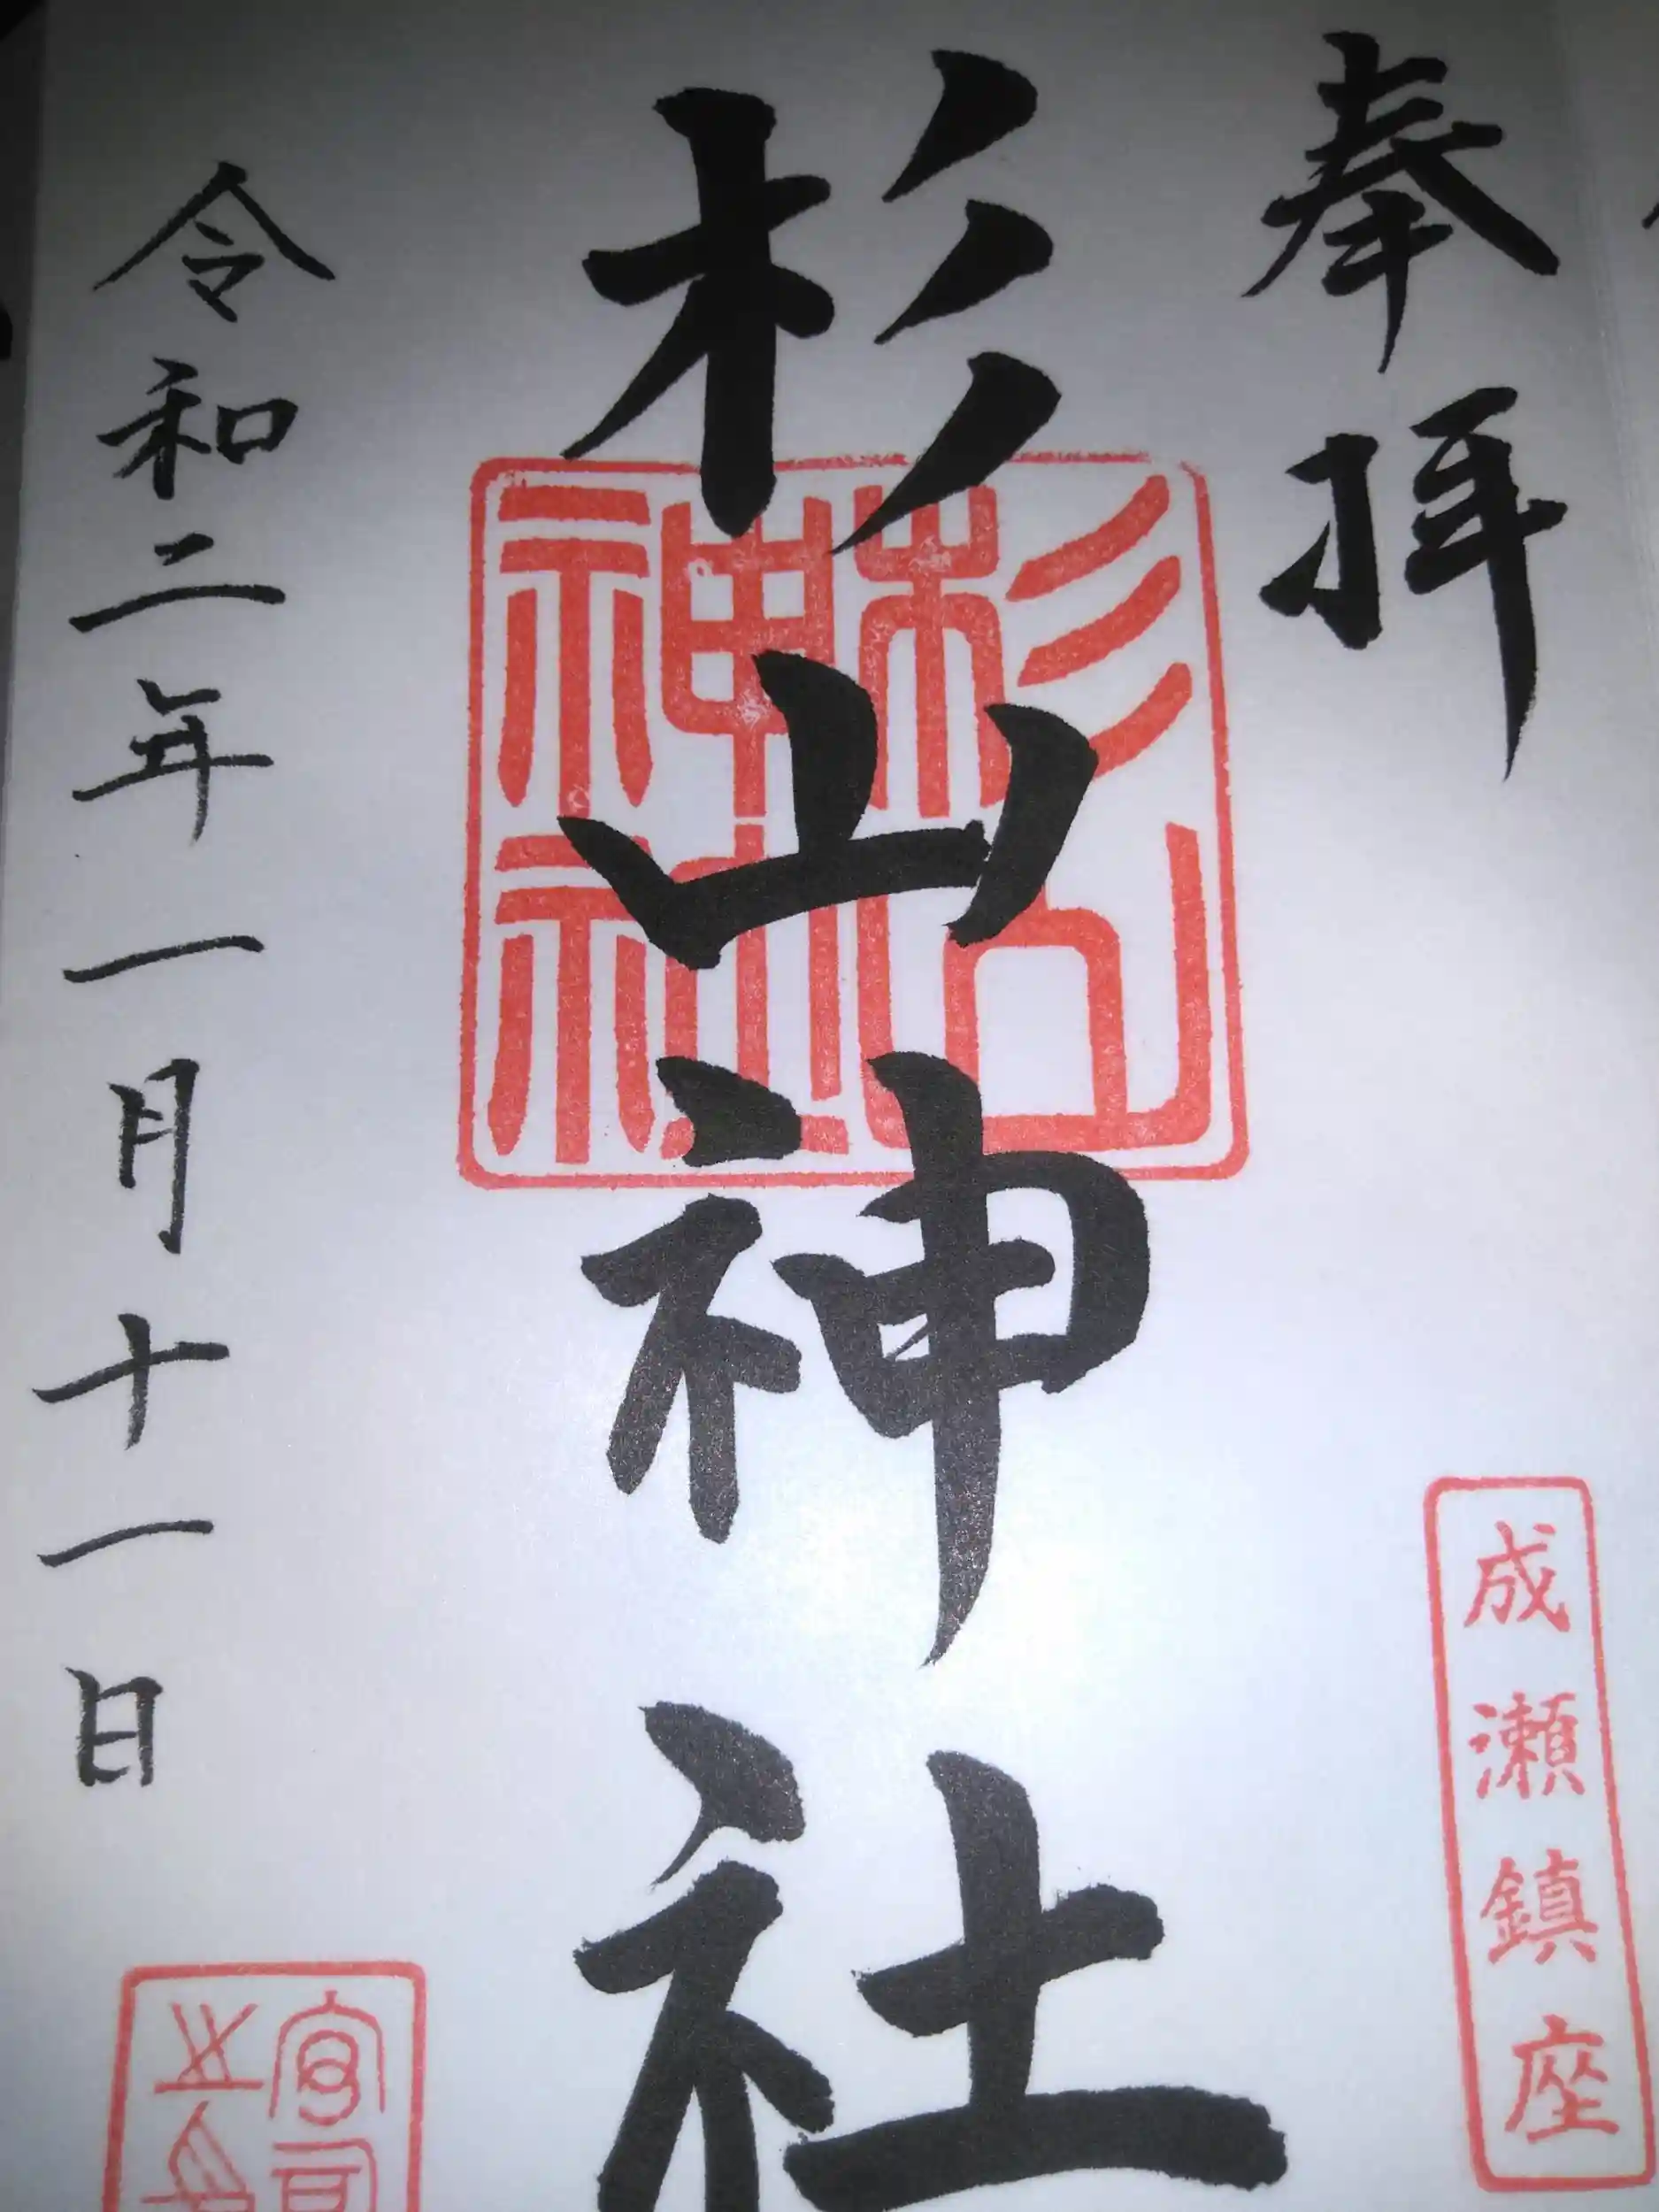 奉拝
成瀬鎮座
杉山神社
杉山
神社
令和二年一月十一日
宮司
之印